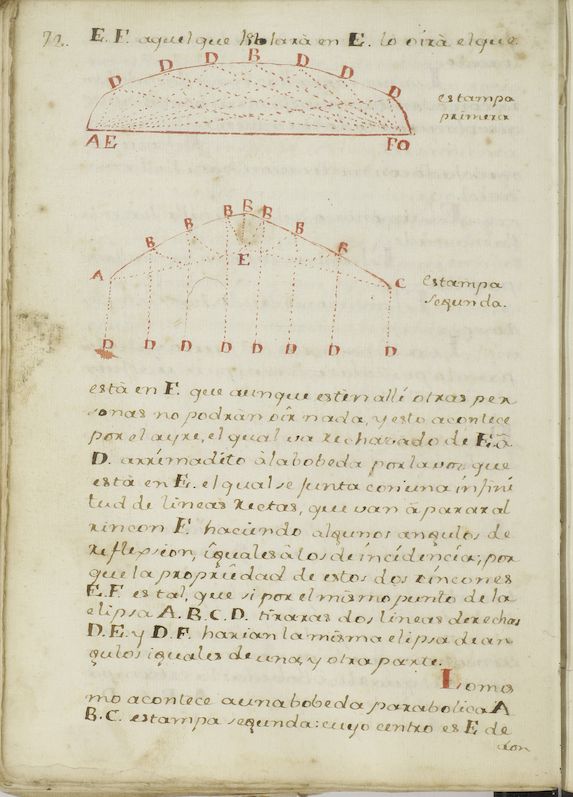 72. E. F. aquel que hablarà en E. lo oirà el que
D D D B D D D
estampa
primera
A E F O
B B B B B B B
A E C
estampa
segunda.
D D D D D D D D
està en F. que aunque esten allì otras per
sonas no podràn oir nada, y esto acontece
por el ayre, el qual va rechazado de E. à
D. arrimadito à la bobeda por la voz que
està en E. el qual se junta con una infini
tud de lineas rectas, que van à parar al
rincon F. haciendo algunos angulos de
reflexsion, iguales à los de incidencia; por
que la propriedad de estos dos rincones
E. F. es tal, que si por el mismo punto de la
elipsa A. B. C. D. tiraras dos lineas derechas
D. E. y D. F. harian la misma elipsa de an
gulos iguales de una, y otra parte.
Lo mis
mo acontece a una bobeda parabolica A
B. C. estampa segunda: cuyo centro es E de
don